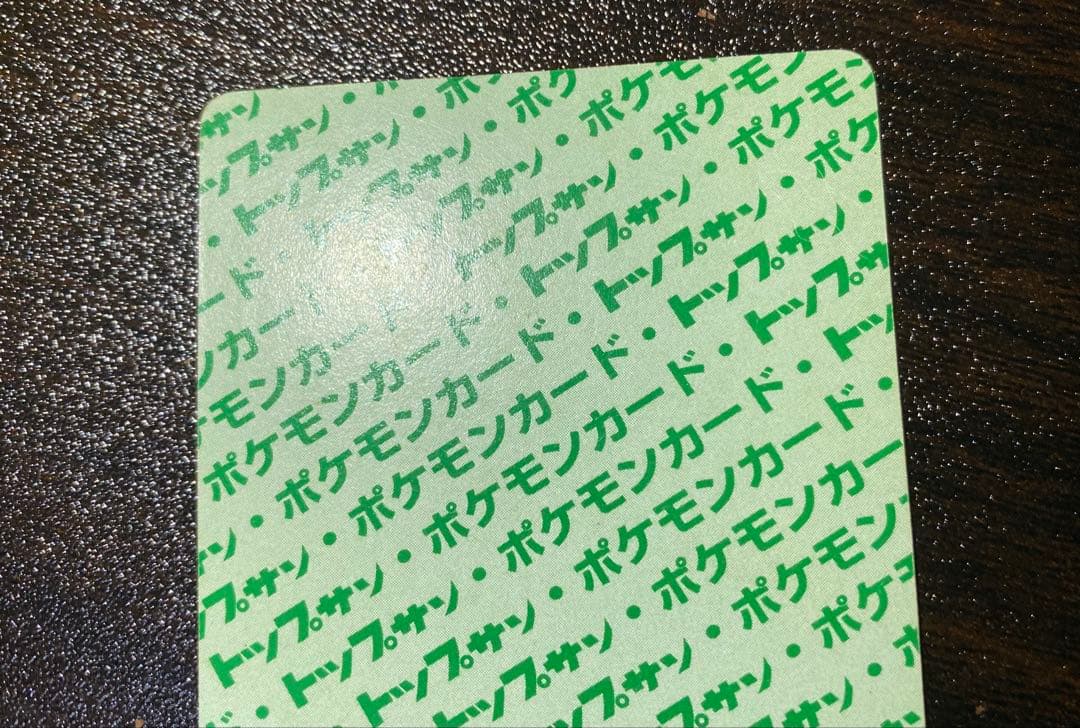 サン
ップサン・ポ
・トップサン・ポケ
ード・トップサン・ポケ
ンカード・トップサン・ポケモ
ケモンカード・トップサン・ポケモン
ポケモンカード・トップサン・ポケモン
ン・ポケモンカード・トップサン・ポケ
プサン・ポケモンカード・トップサン・
トップサン・ポケモンカード・トップサ
トップサン・ポケモンカード・トッ
ド・トップサン・ポケモンカード・
トップサン・ポケモンカー
プサン・ポケモン
サン・ポケ
・ポ